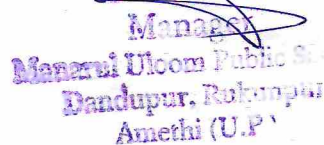 Manager
Manarul Uloom Public
Dandupur, Rukunpur
Amethi (U.P)